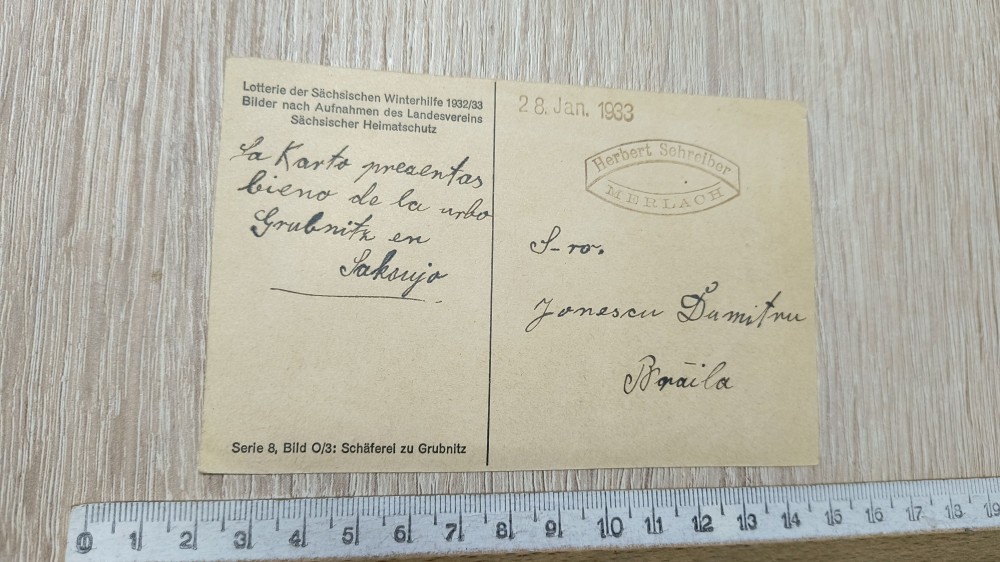 Lotterie der Sächsischen Winterhilfe 1932/33
Bilder nach Aufnahmen des Landesvereins
Sächsischer Heimatschutz
La Karto prezentas
bieno de la urbo
Grubnitz en
Saksujo
Serie 8, Bild O/3: Schäferei zu Grubnitz
28. Jan. 1933
Herbert Schreiber
MERLACH
S-ro.
Jonescu Dumitru
Brăila
0 1 2 3 4 5 6 7 8 9 10 11 12 13 14 15 16 17 18 19